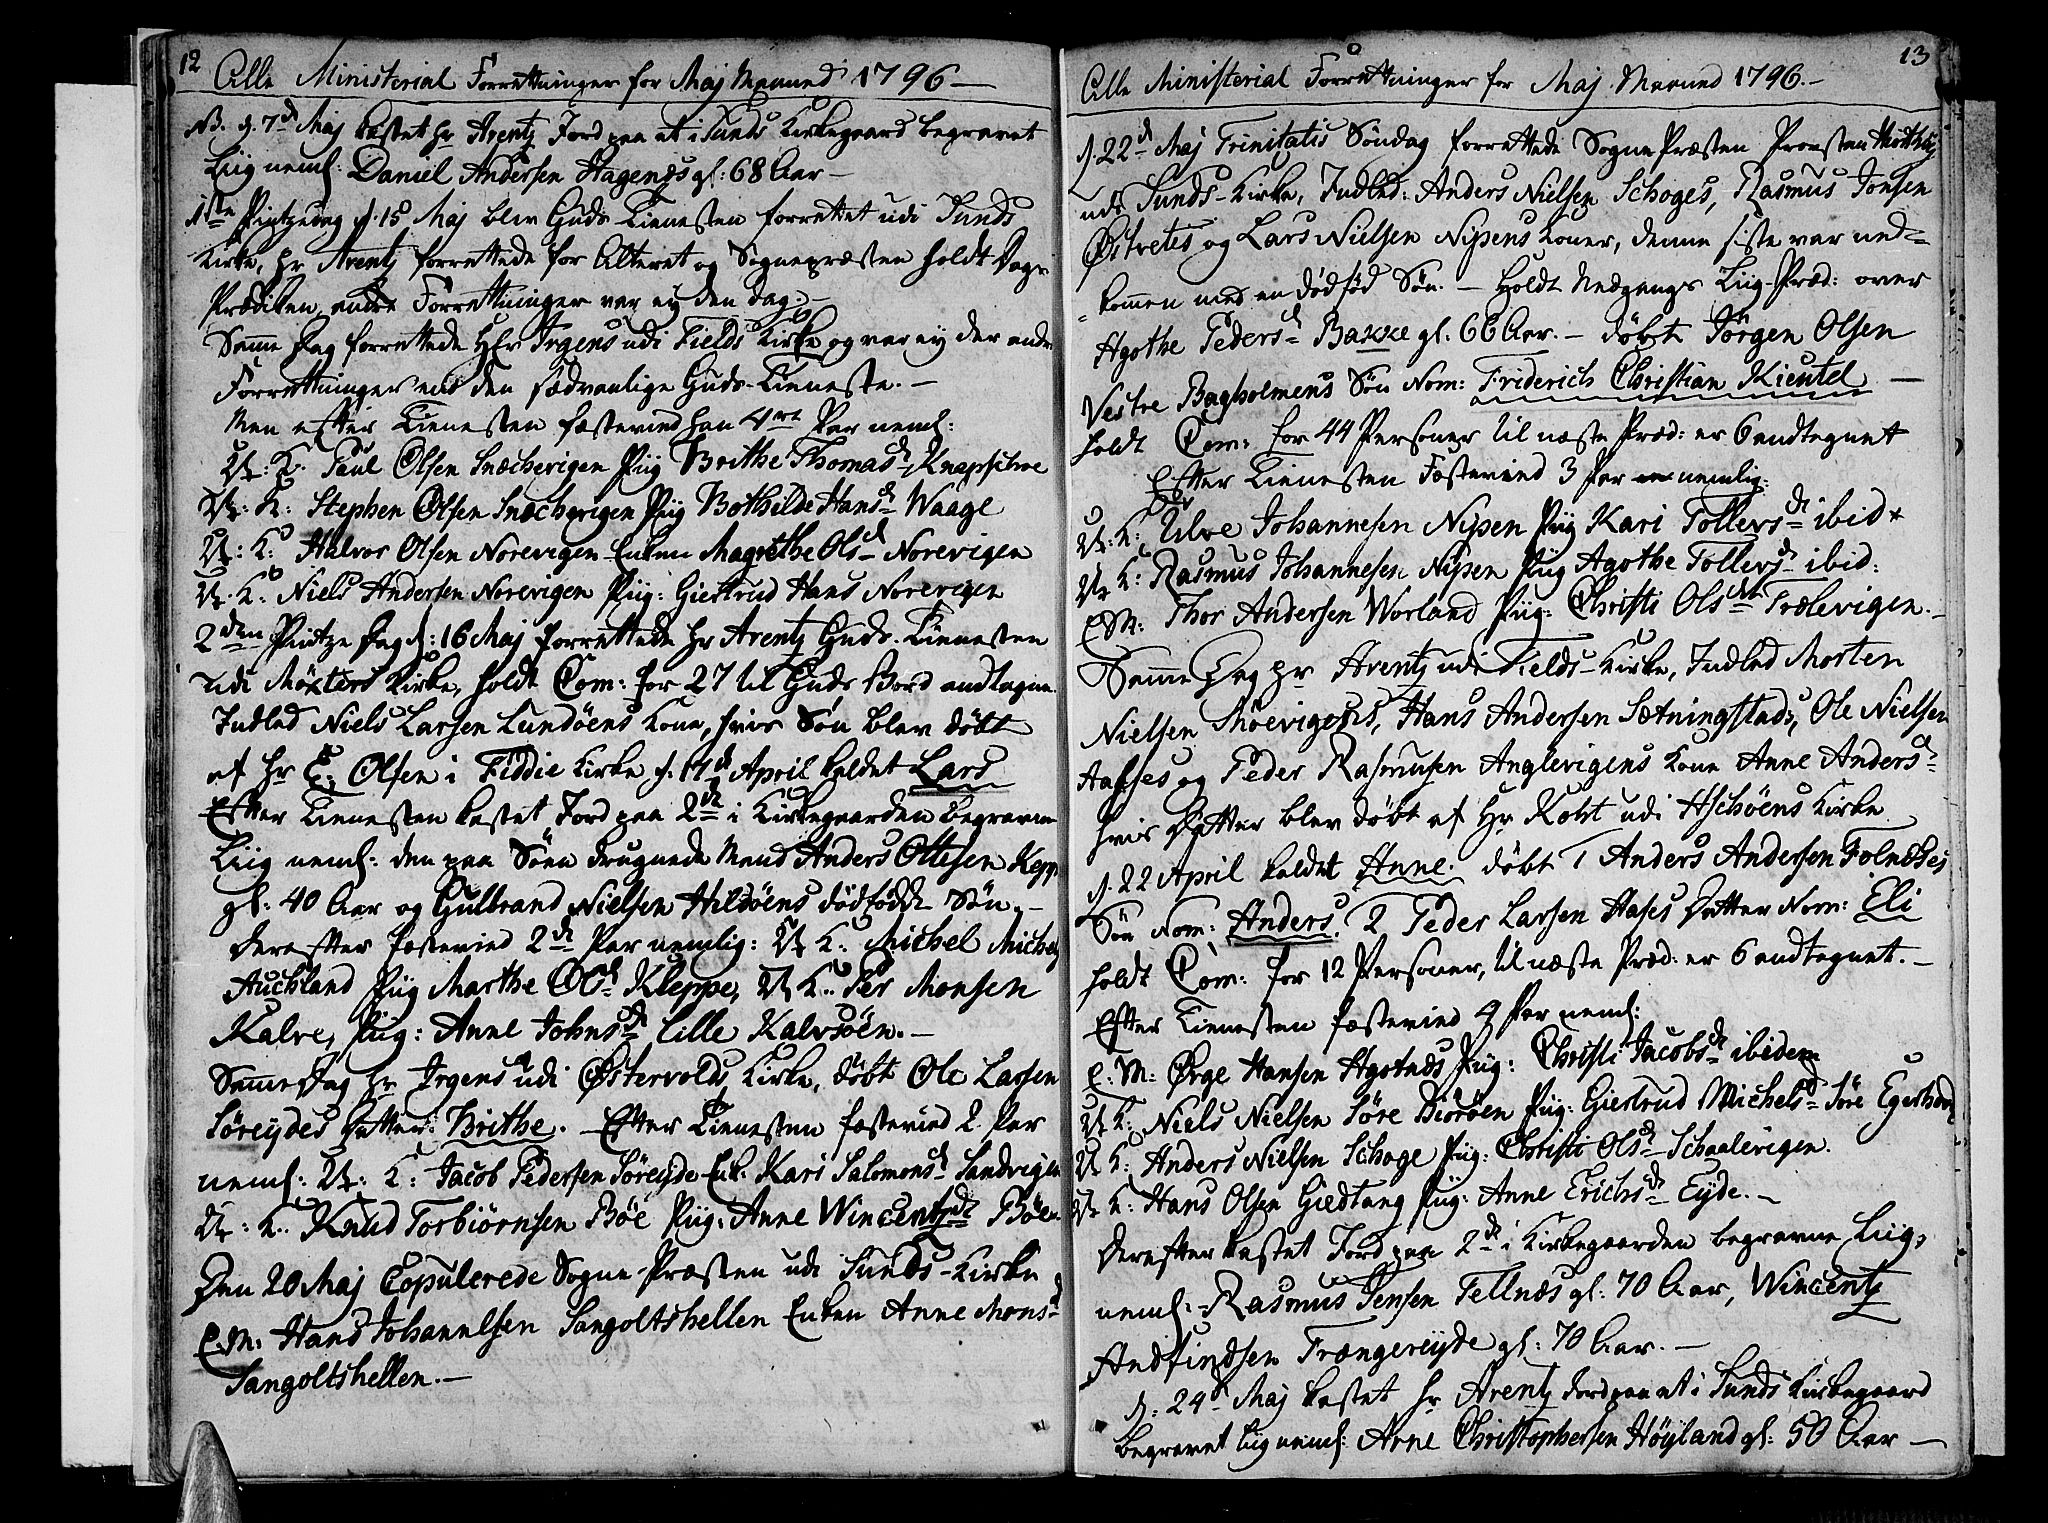 12
Alle Ministerial Forrettninger for Maj Maaned 1796 —
NB. d. 7de Maj kastet hr Arentz Jord paa et i Sunds Kirkegaard begravet
Liig neml: Daniel Andersen Hagenæs gl: 68 Aar —
1ste Pintzedag d. 15 Maj blev Guds Tienesten forrettet udi Sunds
Kirke, hr Arentz forrettede for Alteret og Sognepræsten holdt
Prædiken, andre Forrettninger var ej den dag. —
Samme Dag forrettede Hr Irgens udi Fields Kirke og var ej der andre
Forrettninger end den sædvanlige Guds-Tieneste. —
Men efter Tienesten fæstevied han 4re Par neml:
U: K: Paul Olsen Snecherigen Piig Brithe Thomasd Knapschoe
U: K: Stephen Olsen Snecherigen Piig Bothilde Hansd Waage
U: K: Halvor Olsen Norevigen Enken Magrethe Olsd Norevigen
U: K: Niels Andersen Norevigen Piig: Giertrud Hans Norevigen
2den Pintze Dag d: 16 Maj forrettede hr Arentz Guds-Tienesten
udi Møxters Kirke, holdt Com: for 27 til Guds Bord andtagne.
Indled Niels Larsen Lundöens Kone, hvis Søn blev døbt
af hr E: Olsen i Fiddie Kirke d. 17d April kaldet Lars
Efter Tienesten kastet Jord paa 2de i Kirkegaarden begravne
Liig neml: den paa Söen druknede Mand Anders Ottesen
gl: 40 Aar og Gulbrand Nielsen Hildöens dödfödde Søn. —
Derefter fæstevied 2de Par nemlig: U K: Michel
Auchland Piig Marthe Olsd Kleppe, U K: Per Monsen
Kalve, Piig: Anne Johnsd Lille Kalvsöen. —
Samme Dag hr Irgens udi Østervolds Kirke, døbt Ole Larsen
Søreydes Datter: Brithe. — Efter Tienesten fæstevied 2 Par
neml: U: K: Jacob Pedersen Søreyde Enk: Kari Salomonsd Sandvigen
U: K: Knud Torbiörnsen Böe Piig: Anne Wincentzd
Den 20 Maj Copulerede Sogne-Præsten udi Sunds-Kirke
E. M: Hans Johannesen Sangoltshellen Enken Anne Monsd
Sangoltshellen. —
13
Alle Ministerial Forrettninger for Maj Maaned 1796. —
d. 22d Maj Trinitatis Söndag forrettede Sogne Præsten Provsten
udi Sunds-Kirke, Indled: Anders Nielsen Schoges, Rasmus Jonsen
Østvetes og Lars Nielsen Nipens Koner, denne siste var ned-
kommen med en dödföd Søn. — Holdt Nedgangs Liig-Præd: over
Agothe Pedersd Bakke gl: 66 Aar. — döbt Jörgen Olsen
Vestre Bagholmens Søn Nom: Friderich Christian Kientel —
holdt Com: for 44 Personer til næste Præd: er 6 andtegnet
Efter Tienesten Fæstevied 3 Par nemlig:
U: K: Ulve Johannesen Nipen Piig Kari Tollevsd ibid
U K: Rasmus Johannesen Nipen Piig Agothe Tollevsd ibid:
E M: Thor Andersen Worland Piig: Christi Olsd Trælevigen. —
Samme Dag hr Arentz udi Fields-Kirke, Indled Morten
Nielsen Skoevigens, Hans Andersen Sætningstads, Ole Nielsen
Haases og Peder Rasmusen Anglevigens Kone Anne Andersd
hvis Datter blev döbt af Hr Koht udi Hschöens Kirke
d. 22 April kaldet Anne. döbt 1 Anders Andersen Folnæses
Søn Nom: Anders. 2 Peder Larsen Hases Datter Nom: Eli
holdt Com: for 12 Personer, til næste Præd: er 6 andtegnet. —
Efter Tienesten fæstevied 4 Par neml:
E: M: Ørge Hansen Hagenæs Piig: Christi Jacobsd ibidem
U K: Niels Nielsen Søre Biorøen Piig: Giertrud Michelsd Søre
U K: Anders Nielsen Schoge Piig: Christi Olsd Schaalevigen.
U K: Hans Olsen Giedtang Piig: Anne Erichsd Eyde. —
Derefter kastet Jord paa 2de i Kirkegaarden begravne Liig,
neml: Rasmus Jensen Tellnæs gl: 70 Aar, Wincentz
Andfindsen Trængereyde gl: 70 Aar. —
d: 24d Maj kastet hr Arentz Jord paa et i Sunds Kirkegaard
begravet Liig neml: Arne Christophersen Höyland gl: 50 Aar —